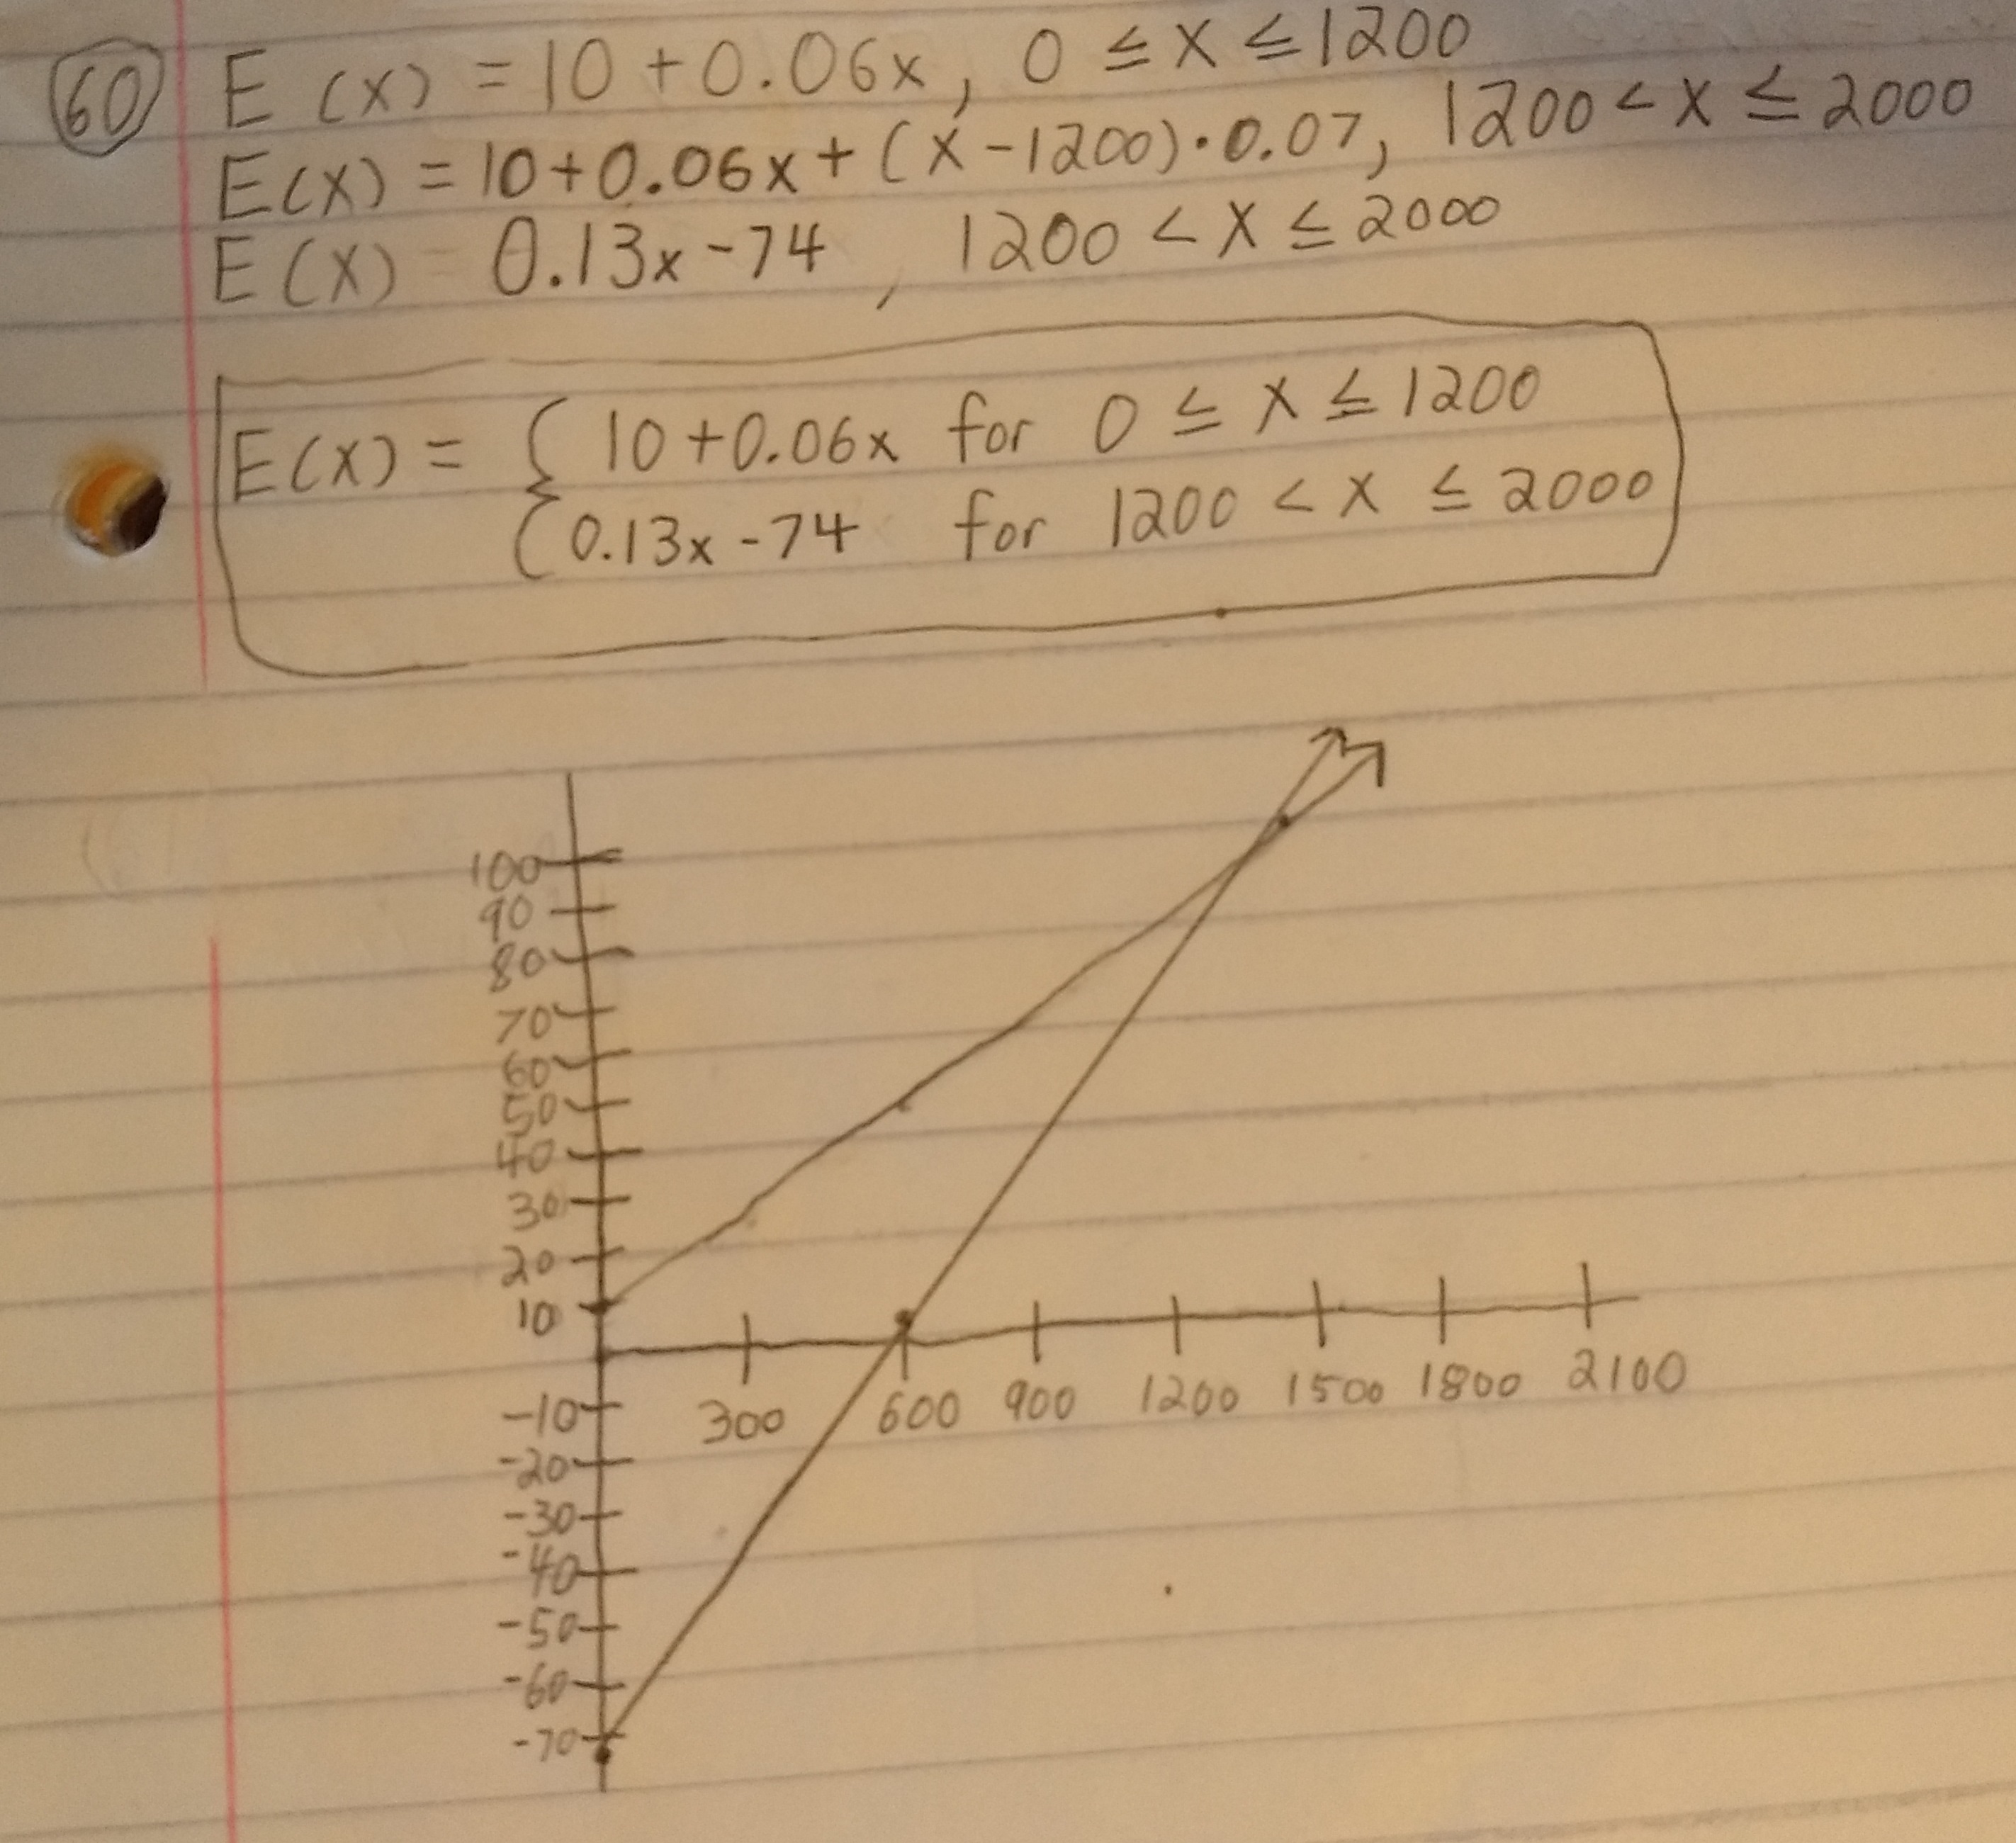 60 E(x) = 10 + 0.06x, 0 ≤ x ≤ 1200
E(x) = 10 + 0.06x + (x - 1200) · 0.07, 1200 < x ≤ 2000
E(x) = 0.13x - 74, 1200 < x ≤ 2000
E(x) = { 10 + 0.06x for 0 ≤ x ≤ 1200
{ 0.13x - 74 for 1200 < x ≤ 2000
100
90
80
70
60
50
40
30
20
10
300 600 900 1200 1500 1800 2100
-10
-20
-30
-40
-50
-60
-70